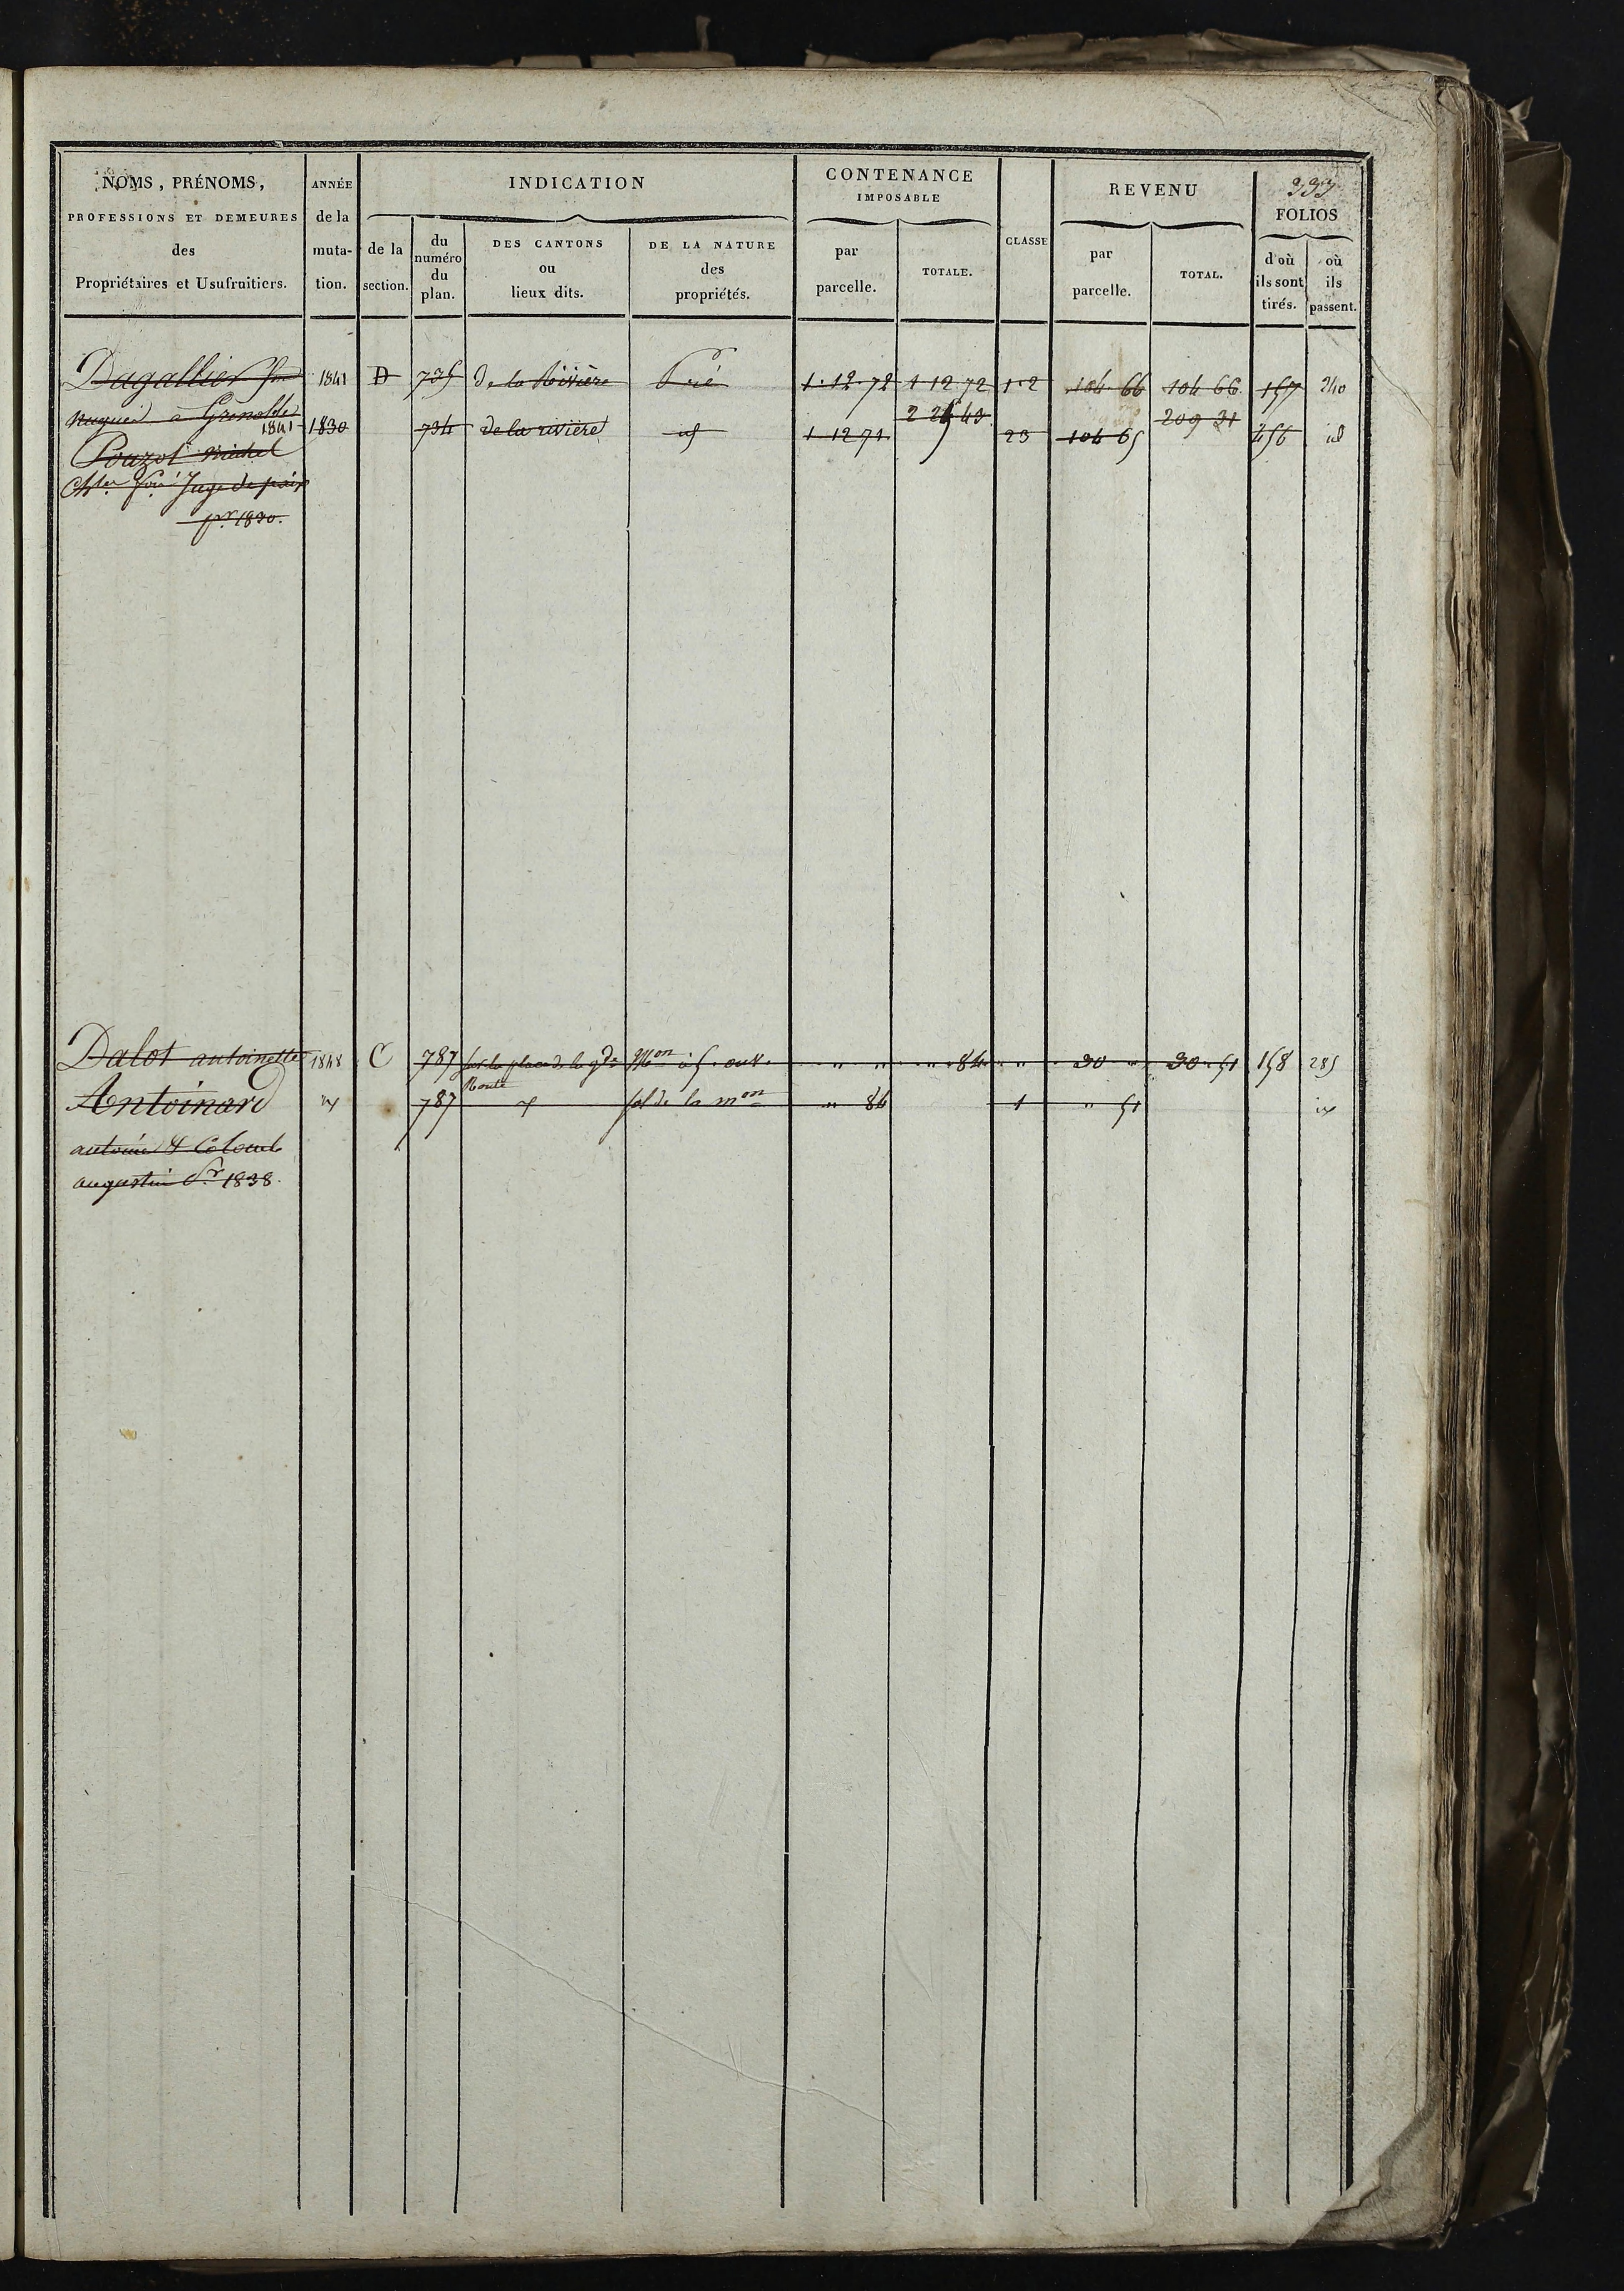 333
NOMS, PRÉNOMS, PROFESSIONS ET DEMEURES des Propriétaires et Usufruitiers.
ANNÉE de la muta- tion.
INDICATION
de la section.
du numéro du plan.
DES CANTONS ou lieux dits.
DE LA NATURE des propriétés.
CONTENANCE IMPOSABLE
par parcelle.
TOTALE.
CLASSE
REVENU
par parcelle.
TOTAL.
FOLIOS
d'où ils sont tirés.
où ils passent.
Dagallier 1841 D 735 de la Rivière Pré 1.12.72 1 12 72 1.2 104 66 104 66 157 240
à Grenoble 2 25 43 209 31
1841 1830 734 de la rivière id 1 12 71 23 104 65 456 id
Pouzol michel
Juge de paix
pr 1830.
Dalot antoinette 1848 C 787 sur la place de la gde Mon à 5. ouv. " " 84 " 30 " 30.51 158 285
Route
Antoinard id 787 id sol de la mon " 84 1 " 51 id
antoine & Colomb
augustin Pr 1838.